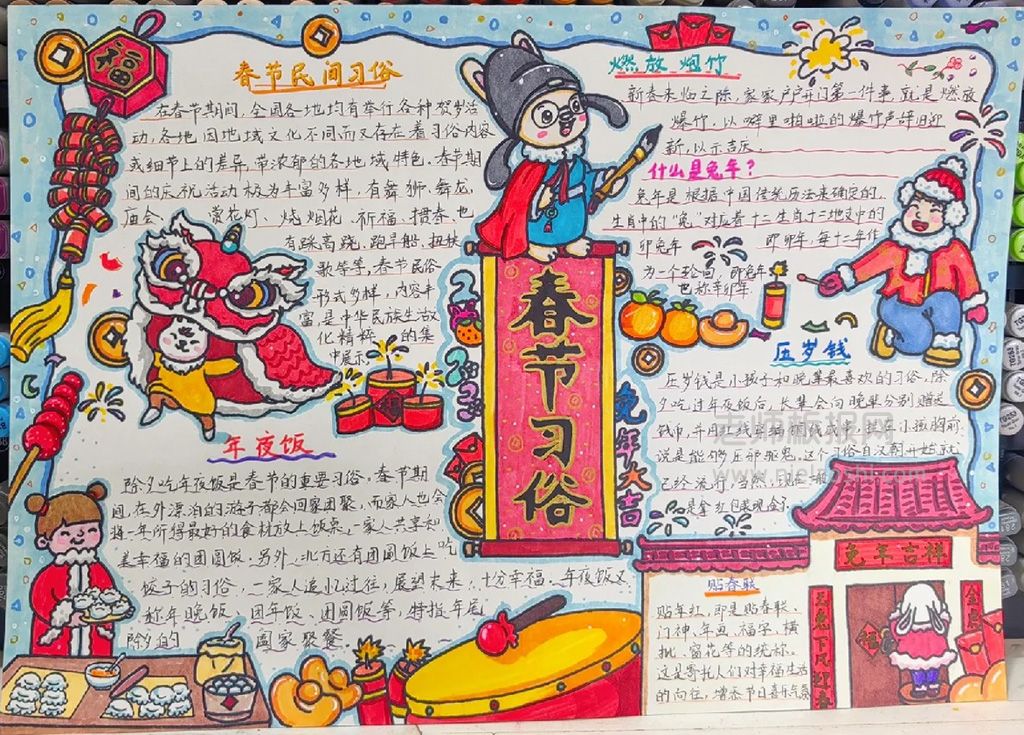 福
春节民间习俗
在春节期间,全国各地均有举行各种贺岁活
动,各地因地域文化不同而又存在着习俗内容
或细节上的差异,带浓郁的各地域特色。春节期
间的庆祝活动极为丰富多样,有舞狮、舞龙、
庙会、赏花灯、烧烟花、祈福、掼春,也
有踩高跷、跑旱船、扭秧
歌等等,春节民俗
形式多样,内容丰
富,是中华民族生活文
化精粹的集
中展示。
年夜饭
除夕吃年夜饭是春节的重要习俗,春节期
间,在外漂泊的游子都会回家团聚,而家人也会
将一年所得最好的食材放上饭桌,一家人共享和
美幸福的团圆饭。另外,北方还有团圆饭上吃
饺子的习俗,一家人追忆过往,展望未来,十分幸福。年夜饭又
称年晚饭、团年饭、团圆饭等,特指年尾
除夕的阖家聚餐。
春节习俗
2023
兔年大吉
燃放炮竹
新春来临之际,家家户户开门第一件事,就是燃放
爆竹,以噼里啪啦的爆竹声辞旧迎
新,以示吉庆。
什么是兔年?
兔年是根据中国传统历法来确定的,
生肖中的“兔”对应着十二生肖十二地支中的
卯兔年 即卯年,每十二年作
为一个轮回,即兔年
也称辛卯年
压岁钱
压岁钱是小孩子和晚辈最喜欢的习俗,除
夕吃过年夜饭后,长辈会向晚辈分别赠送
钱币,并用红线穿编
说是能够压邪驱鬼,这个习俗自汉朝开始就
已经流行
是拿红包装现金
老师板报网
贴春联
贴年红,即是贴春联、
门神、年画、福字、横
批、窗花等的统称。
这是寄托人们对幸福生活
的向往,增添节日喜乐气氛
兔年吉祥
玉兔下凡迎春
福
金鸟